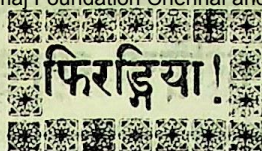 naj Foundation Chennai and
फिरङ्गिया!